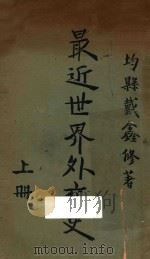 均縣戴鑫修著
最近世界外交史
上册